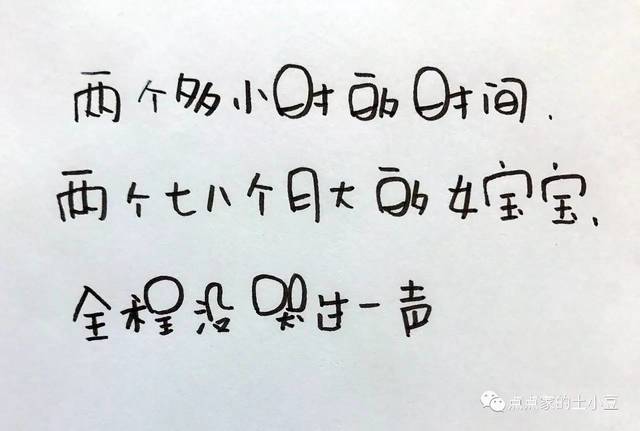 两个多小时的时间.
两个七八个月大的女宝宝、
全程没哭过一声
点点家的土小豆